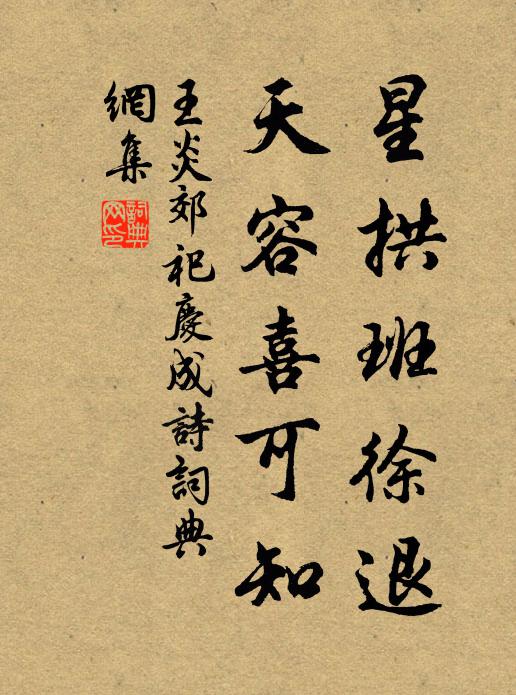 星拱班徐退
天容喜可知
王炎郊祀慶成詩詞典
網集
詞典網印